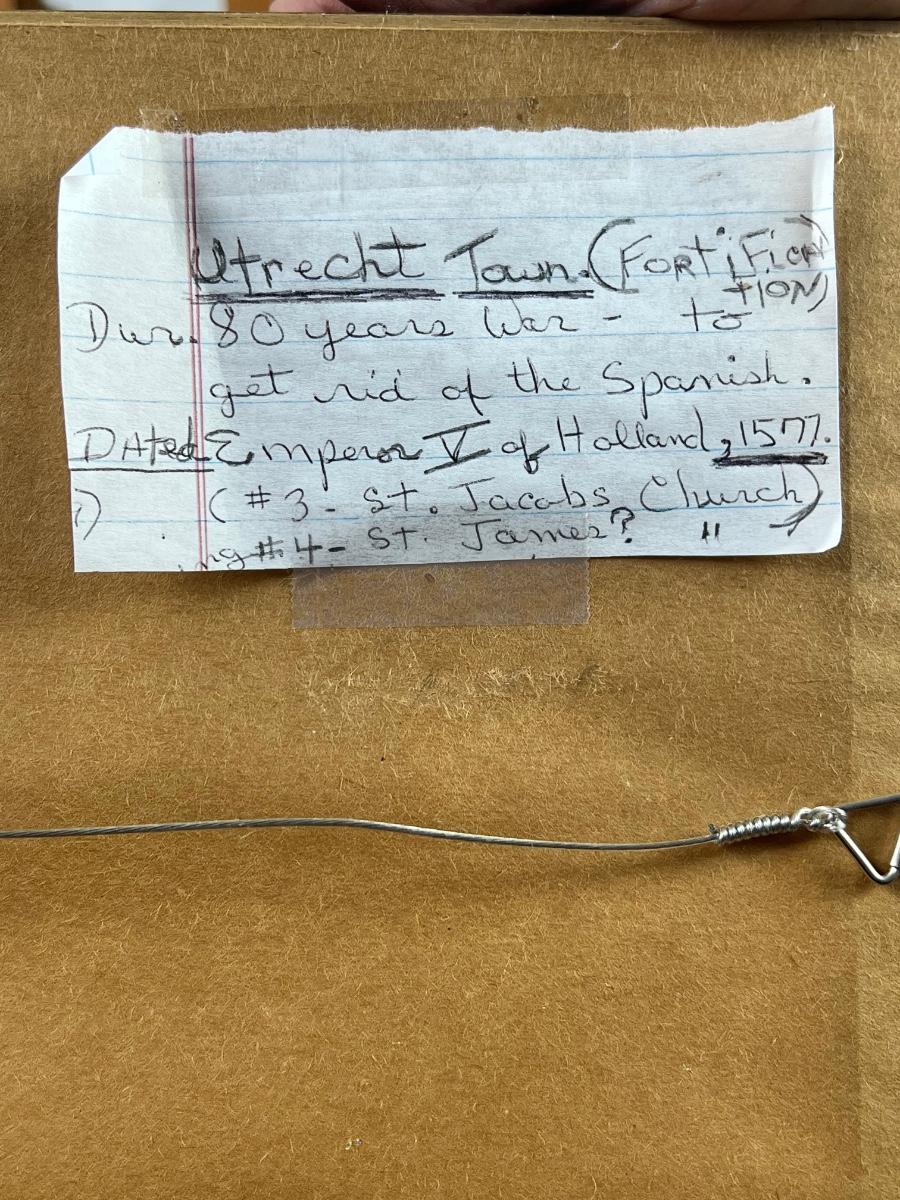 Utrecht Town. (FORTiFiCA
TION)
Dur. 80 years War - to
get rid of the Spanish.
DAted Emperor V of Holland, 1577.
(#3 - St. Jacobs Church)
#4 - St. James? " )